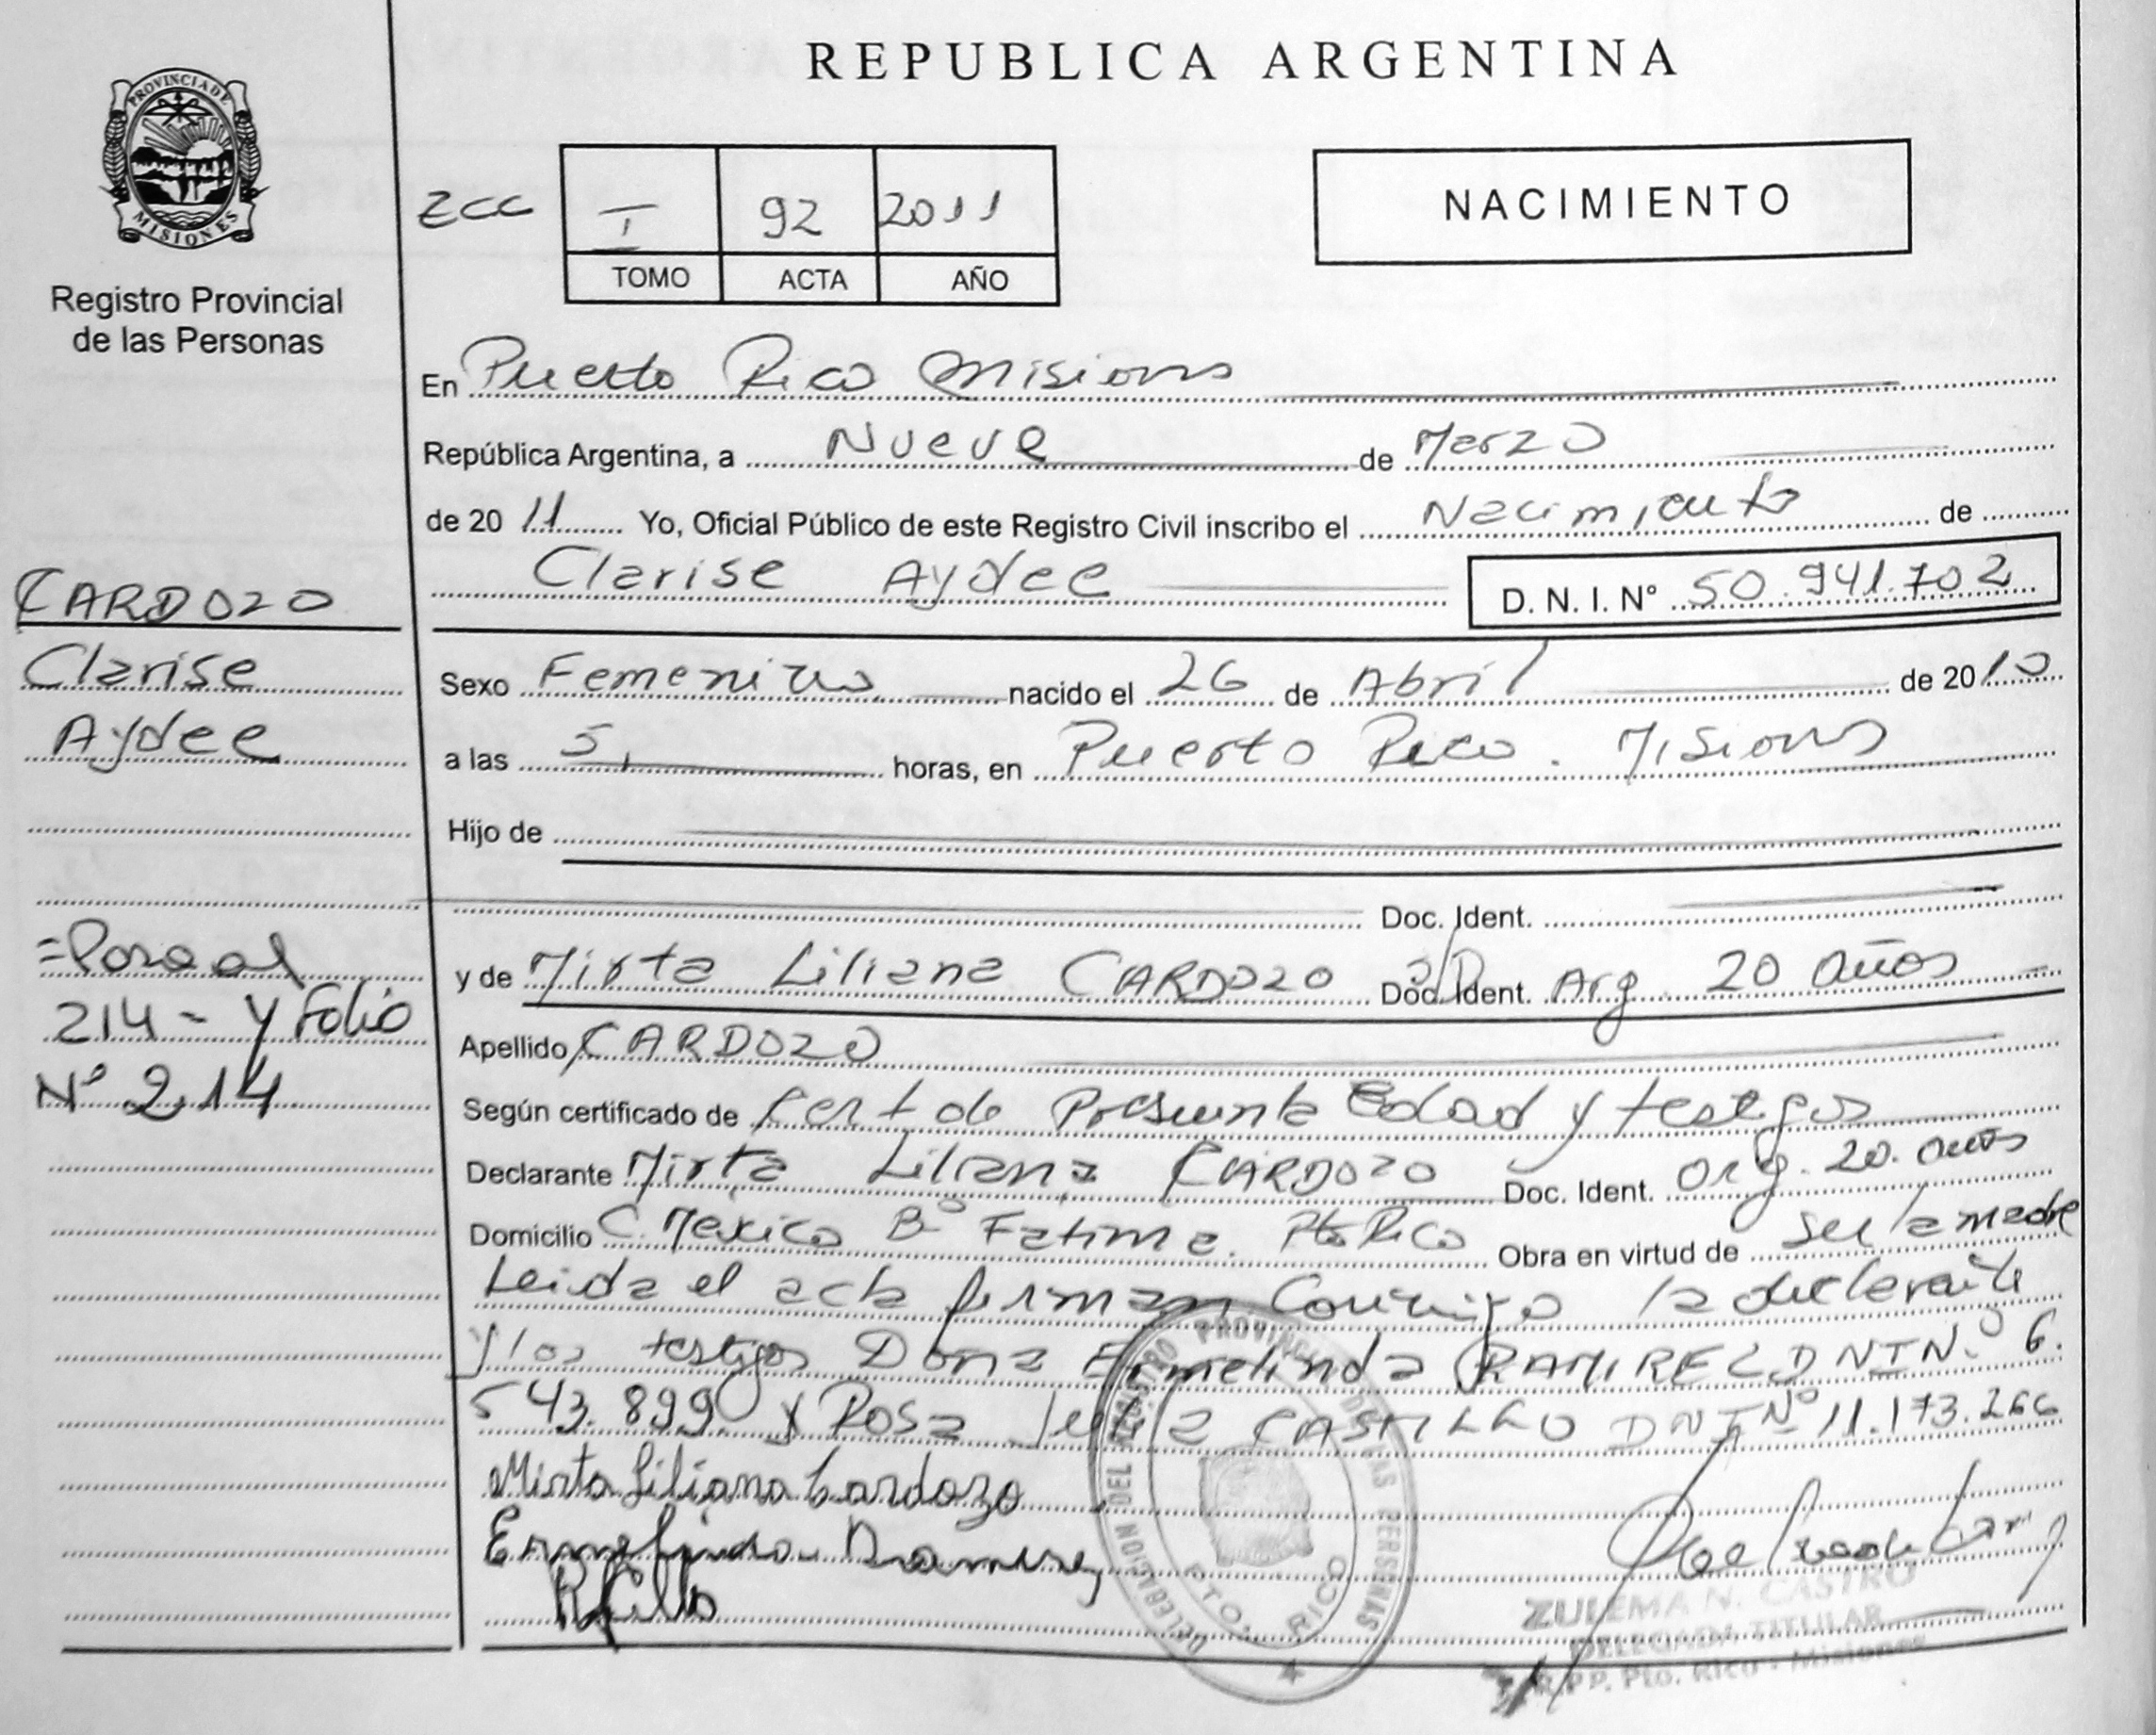 REPUBLICA ARGENTINA
PROVINCIA DE
MISIONES
Registro Provincial
de las Personas
I 92 2011
TOMO ACTA AÑO
NACIMIENTO
En Puerto Rico Misiones
República Argentina, a Nueve de Marzo
de 20 11 Yo, Oficial Público de este Registro Civil inscribo el Nacimiento de
Clarise Aydee D. N. I. N° 50.941.702
CARDOZO
Clarise
Aydee
214 - y Folio
N° 214
Sexo Femenino nacido el 26 de Abril de 2010
a las 5, horas, en Puerto Rico. Misiones
Hijo de
Doc. Ident.
y de Mirta Liliana CARDOZO Doc. Ident. Arg. 20 años
Apellido CARDOZO
Según certificado de Cert de Presunta Edad y testigos
Declarante Mirta Liliana CARDOZO Doc. Ident. Arg. 20. años
Domicilio C. Mexico B° Fatima. Pto Rico Obra en virtud de ser la madre
Leida el acta firman Conmigo la declarante
y los testigos Doña Ermelinda RAMIREZ DNI N° 6.
543.899 y Rosa CASTILLO DNI N° 11.173.266
Mirta Liliana Cardozo
Ermelinda Ramirez
DELEGACION DEL REGISTRO PROVINCIAL DE LAS PERSONAS
PTO. RICO
ZULEMA N. CASTRO
DELEGADA TITULAR
R.P.P. Pto. Rico - Misiones